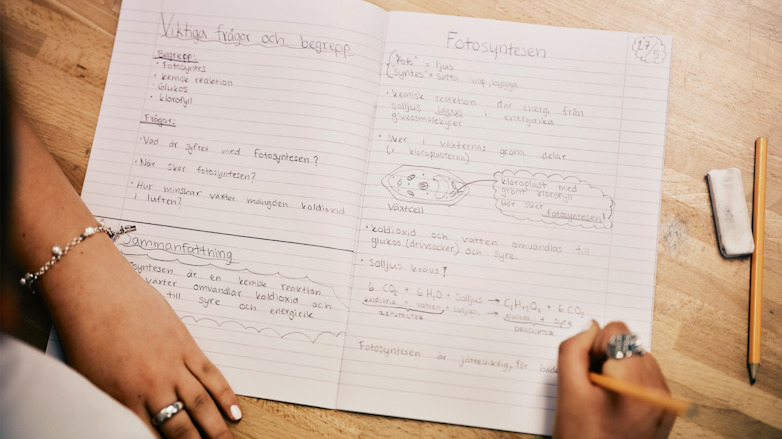 Viktiga frågor och begrepp.
Begrepp:
• Fotosyntes
• kemisk reaktion
• Glukos
• klorofyll
Frågor:
• Vad är syftet med Fotosyntesen?
• När sker fotosyntesen?
• Hur minskar växter mängden koldioxid
i luften?
Sammanfattning
syntesen är en kemisk reaktion
växter omvandlar koldioxid och
till syre och energirik
Fotosyntesen
27/5
"Foto" = ljus
"syntes" = sätta ihop, bygga
• kemisk reaktion där energi från
solljus lagras i energirika
glukosmolekyler
• Sker i växternas gröna delar
(i kloroplasterna)
Växtcell
kloroplast med
grönt klorofyll
Här sker
fotosyntesen!
• koldioxid och vatten omvandlas till
glukos (druvsocker) och syre.
• Solljus krävs!
6 CO2 + 6 H2O + solljus → C6H12O6 + 6 CO2
koldioxid + vatten + solljus → glukos + syre
produkter
Fotosyntesen är jätteviktig, för både